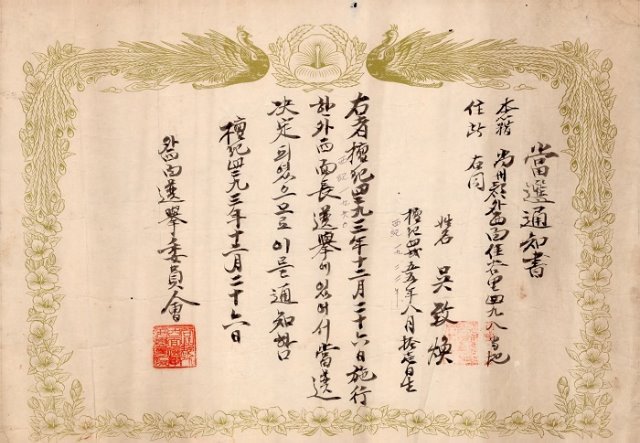 當選通知書
本籍 尚州郡外西面 里四九八番地
住所 右同
姓名 吳致煥
檀紀四二五五年八月 日生
右者檀紀四二九三年十二月二十六日施行
한外西面長選擧에있어서當選
決定되었으므로이를通知함
檀紀四二九三年十二月二十六日
外西面選擧委員會